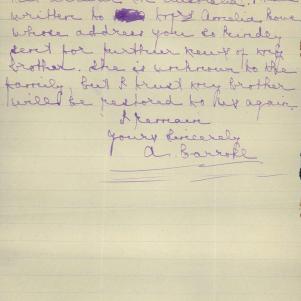 in Australia. I
written to Mrs Amelia Rowe
whose address you so kindly
sent for further news of my
brother. She is unknown to the
family, but I trust my brother
will be restored to us again.
I remain
Yours Sincerely
A.